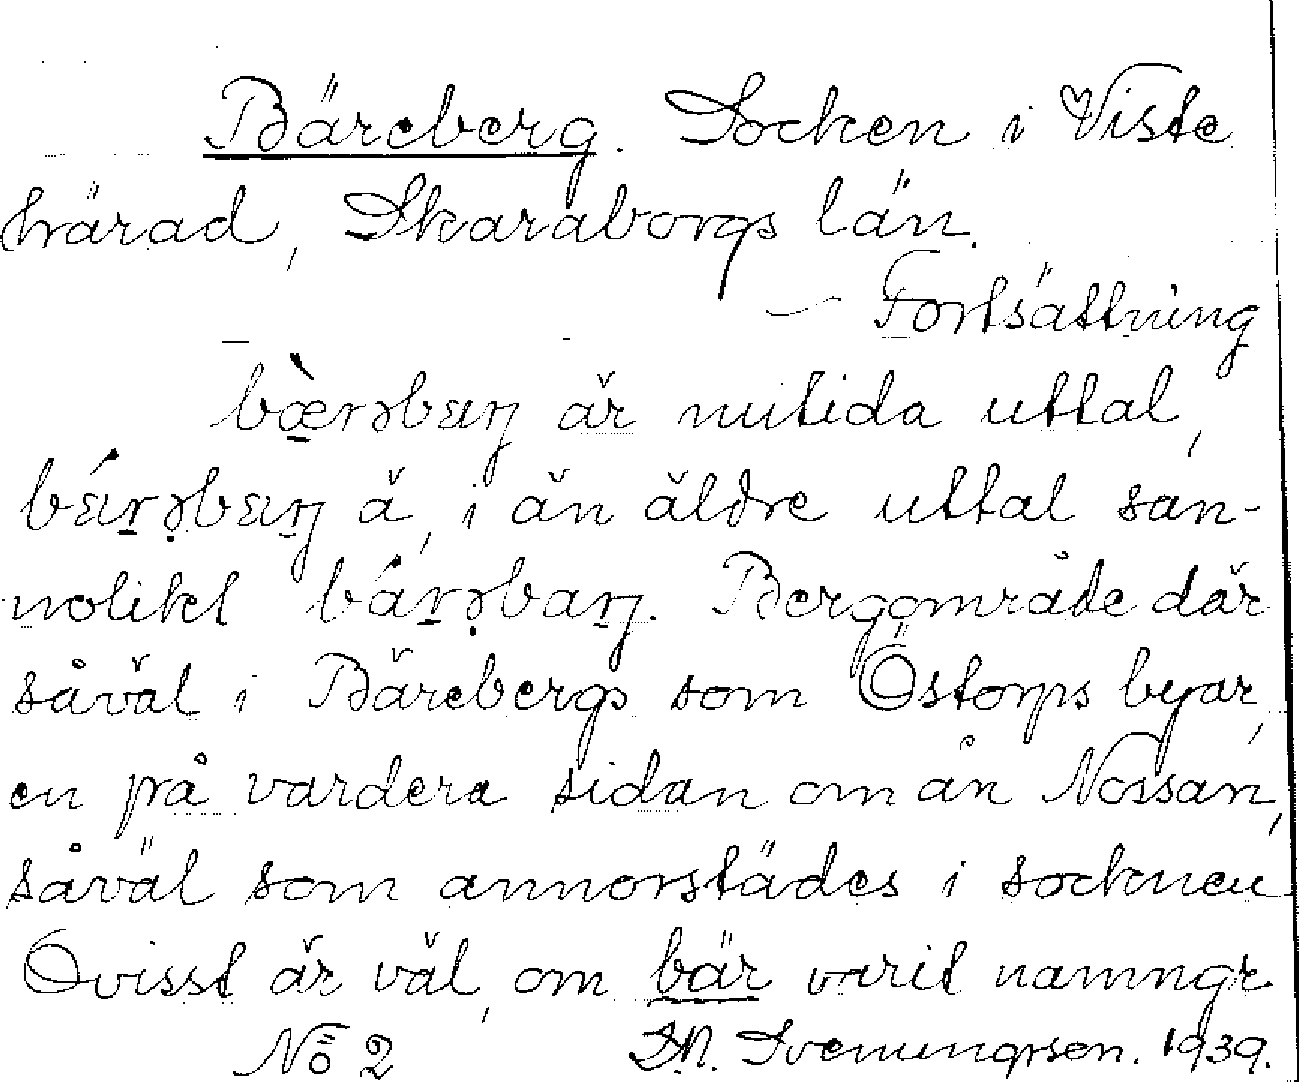 Bäreberg. Socken i Viste
härad, Skaraborgs län.
— Fortsättning
är nutida uttal,
ä, i än äldre uttal san-
nolikt Bergområde där
såväl i Bärebergs som Östorps byar,
en på vardera sidan om ån Nossan,
såväl som annorstädes i socknen
Ovisst är väl, om bär varit namngr.
No 2 D.N. Svenungsson. 1939.